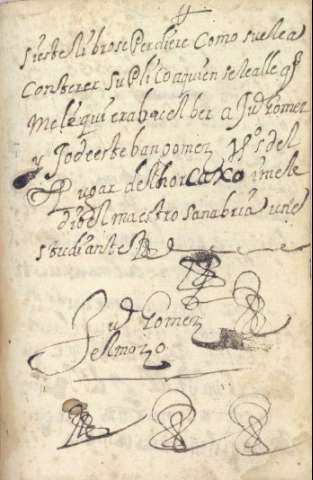 si este libro se perdiere como suele a
Conteser suplico a quien se le alle q
me le quiera bacelber a Juo gomez
y Jo de esteban gomez Vos del
Lugar del horcaxo i me le
dio el maestro sanabria un e
studiante
Juo Gomez
el mozo